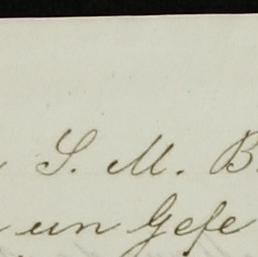 S. M. B
un Gefe